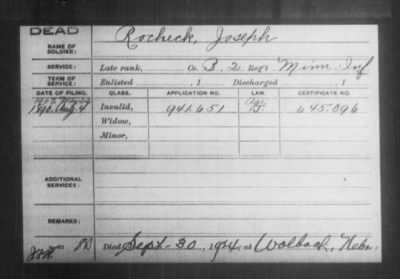 DEAD
NAME OF SOLDIER: Rocheck, Joseph
SERVICE: Late rank, Co. B, 2 Reg't Minn Inf
TERM OF SERVICE: Enlisted , 1 Discharged , 1
DATE OF FILING. CLASS. APPLICATION NO. LAW. CERTIFICATE NO.
1907 May 22 Age
1890 Aug. 4 Invalid, 941.651 J. 645.096
Widow,
Minor,
ADDITIONAL SERVICES:
REMARKS:
Died Sept-30, 1924, at Wolbach, Nebr.